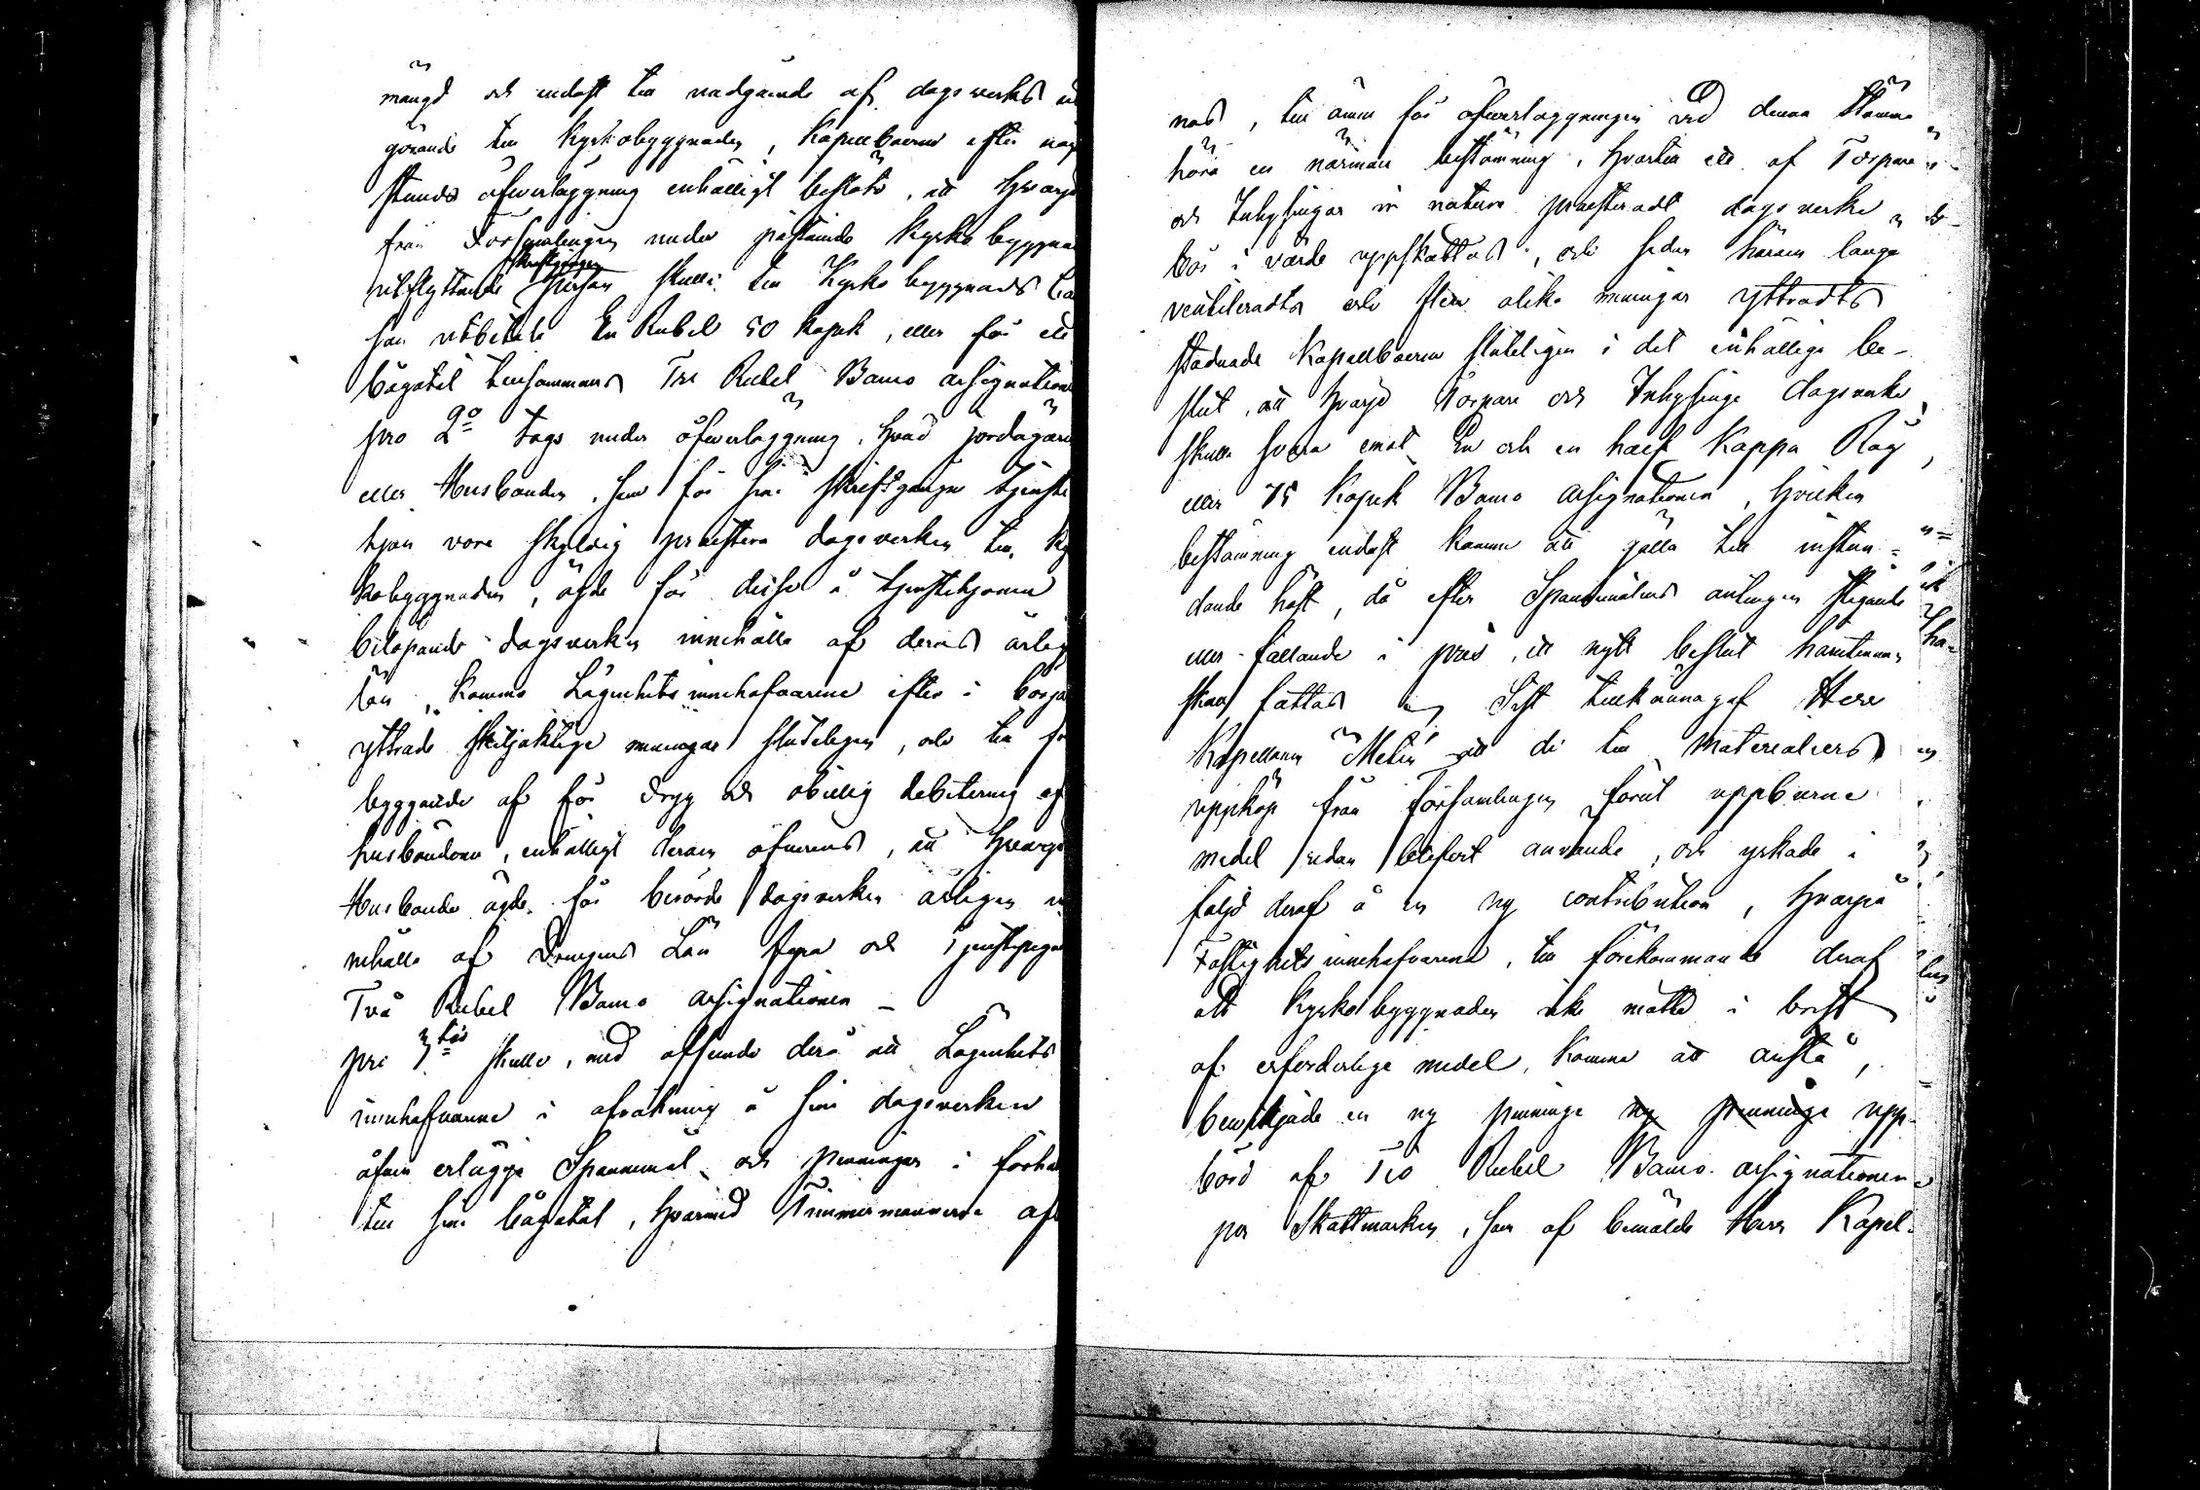 mängd och endast till nedgående af dagsverks
görande till Kyrkobyggnaden, Kapellboerne efter någ
stunds öfverläggning enhälligt beslöto, att hvarje
från Församlingen under påstående Kyrko byggna
utflyttande skriftgången person skulle till Kyrko byggnads
san utbetala En Rubel 50 kopek, eller för ett
bågatal tillsammans Tre Rubel Banco assignationer
pro 2º togs under öfverläggning, hvad jordägare
eller Husbonden, som för sine skriftgångne tjenste
hjon vore skyldig præstera dagsverken till Ky
kobyggnaden, ägde för desse å tjenstehjonen
belöpande dagsverken innehålla af deras årlig
lön, Kommo Lägenhets innehafvarene efter i börja
yttrade skiljaktige meningar sluteligen, och till fö
byggande af för dryg och obillig debitering af
husbönderne, enhälligt derom öfverens, att hvarje
Husbonde ägde för berörde dagsverken årligen in
nehålla af Drengens Lön fyra och Tjenstepigans
Två Rubel Banco assignationer –
pro 3tio skulle, med afseende derå att Lägenhets
innehafvarne i afräkning å sine dagsverken
åfven erlägga Spannmål och penningar i förhål
till sine bågatal, hvarmed Timmermännerne af
nas, till ämne för öfverläggningen vid denna Stämma
höra en närmare bestämning, hvartill ett af Torpare
och Inhysingar in natura præsteradt dagsverke
bör i värde uppskattas; och sedan härom länge
ventileradts och flere olika meningar yttradts
stadnade Kapellboerne sluteligen i det enhällige be-
slut, att hvarje Torpare och Inhysinge dagsverke
skulle svara emot En och en half Kappa Råg,
eller 75 Kopek Banco assignationer, hvilken
bestämning endast komme att gälla till instun-
dande höst, då efter Spannmålens antingen stigande
eller fallande i pris, ett nytt beslut häruti
skall fattas Sist tillkännagaf Herr
Kapellanen att de till Materialiers
uppköp från Församlingen förut uppburne
medel redan blifvit använde, och yrkade i
följd deraf å en ny contribution, hvarpå
Fastighets innehafvarene, till förekommande deraf
att Kyrkobyggnaden icke måtte i brist
af erforderlige medel, komma att anstå,
beviljade en ny penninge ny penninge upp-
börd af Tio Rubel Banco assignationer
per Skattmarken, som af bemälde Herr Kapel-